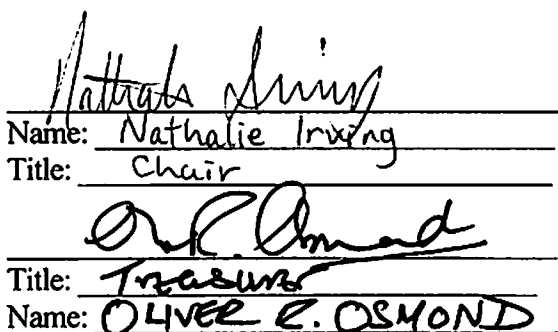 Nathalie Irving
Name: Nathalie Irving
Title: Chair
O R. Osmond
Title: Treasurer
Name: OLIVER R. OSMOND